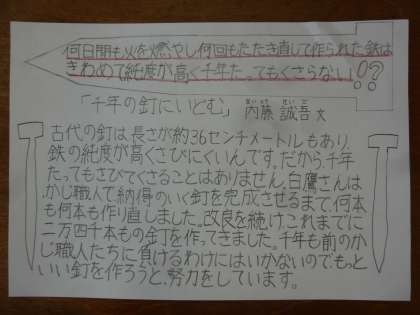 何日間も火を燃やし何回もたたき直して作られた鉄は
きわめて純度が高く千年たってもくさらない!!?
「千年の釘にいどむ」内藤誠吾 文
古代の釘は長さが約36センチメートルもあり
鉄の純度が高くさびにくいんです。だから千年
たってもさびてくさることはありません。白鷹さんは
かじ職人で納得のいく釘を完成させるまで、何本
も何本も作り直しました。改良を続け、これまでに
二万四千本もの釘を作ってきました。千年も前のか
じ職人たちに負けるわけにはいかないので、もっと
いい釘を作ろうと、努力をしています。